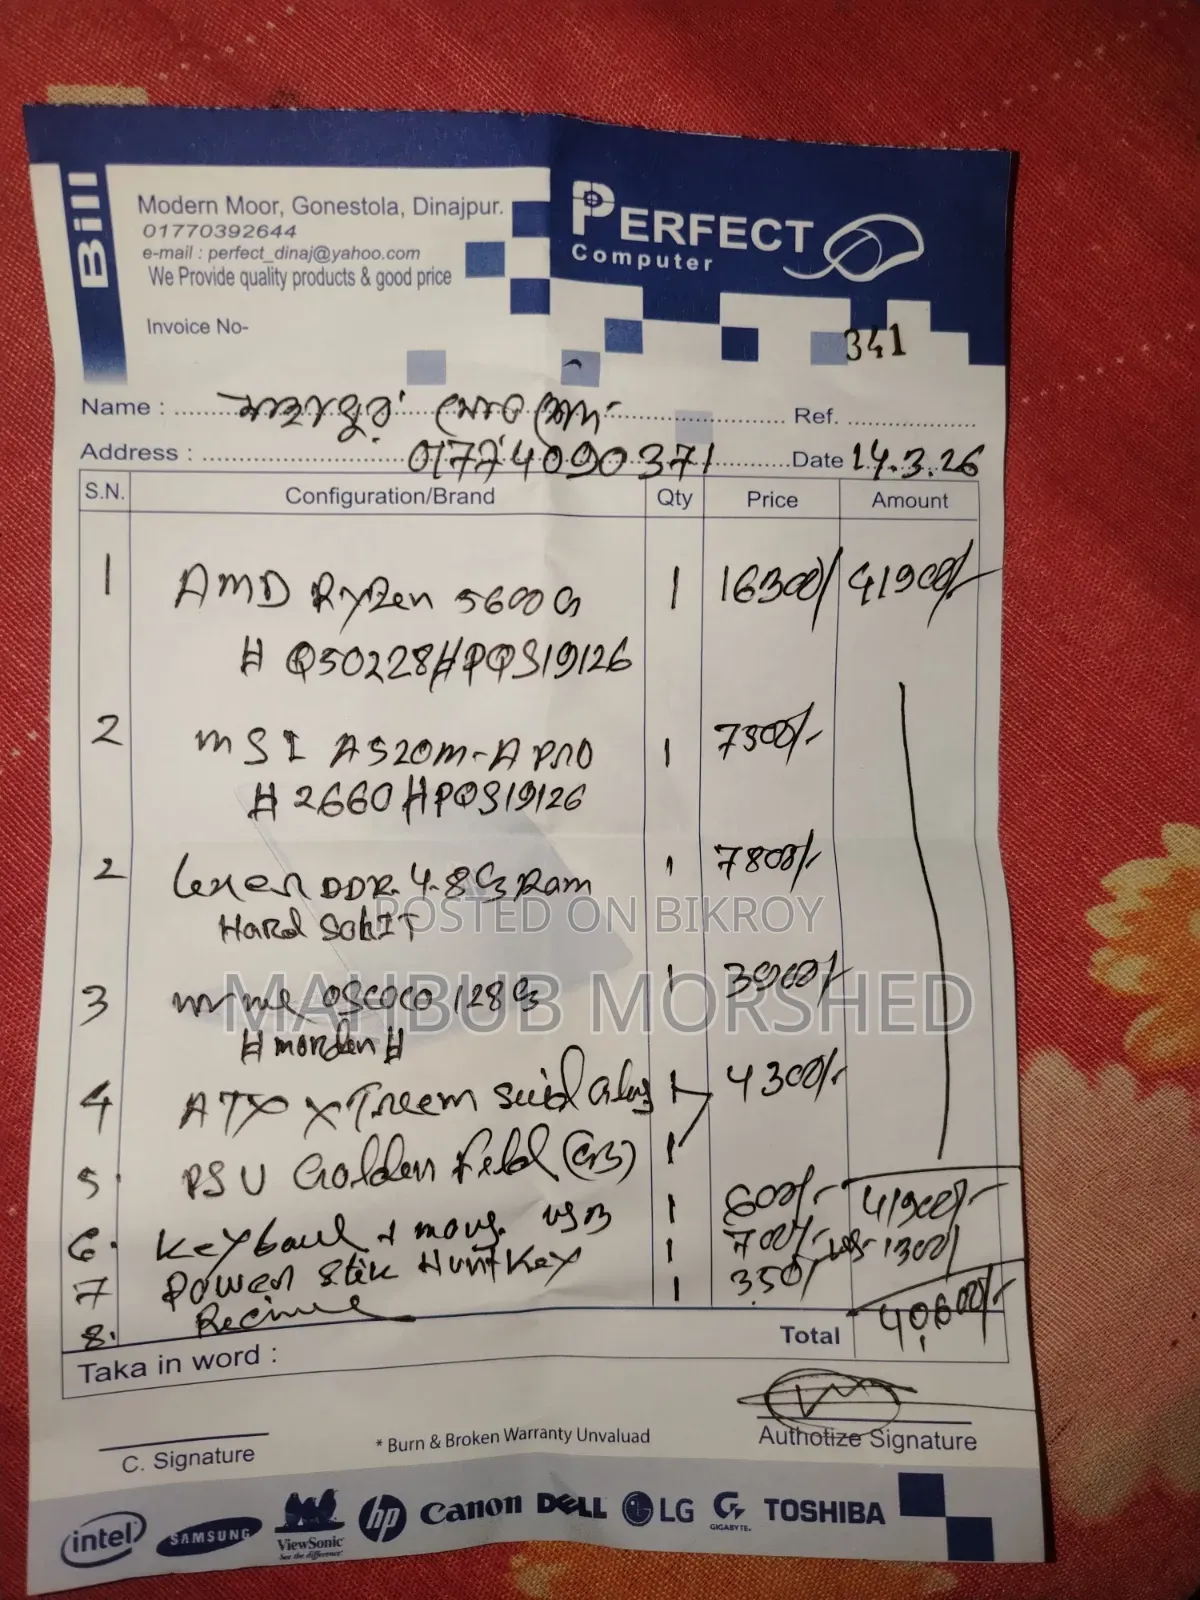 Bill
Modern Moor, Gonestola, Dinajpur.
01770392644
e-mail : perfect_dinaj@yahoo.com
We Provide quality products & good price
PERFECT
Computer
Invoice No-
341
Name : মাহবুব মোর্শেদ Ref.
Address : 01774090371 Date 14.3.26
S.N. Configuration/Brand Qty Price Amount
1 AMD Ryzen 5600G 1 16300/ 41900/-
# Q50228HPQS19126
2 MSI A520M-A PRO 1 7300/-
# 2660HPQS19126
2 Lexer DDR.4.8G Ram 1 7800/-
Hard
3 128G 1 3900/-
4 ATX XTreem 1 4300/-
5. PSU Golden Field 1
6. Keyboard + mous. USB 1 600/- 41900/-
7 Power Stik HuntKey 1 700/- 1300/
8. 1 350/
Total 40,600/-
Taka in word :
C. Signature
* Burn & Broken Warranty Unvaluad
Authotize Signature
intel SAMSUNG ViewSonic See the difference hp Canon DELL LG GIGABYTE TOSHIBA
POSTED ON BIKROY
MAHBUB MORSHED